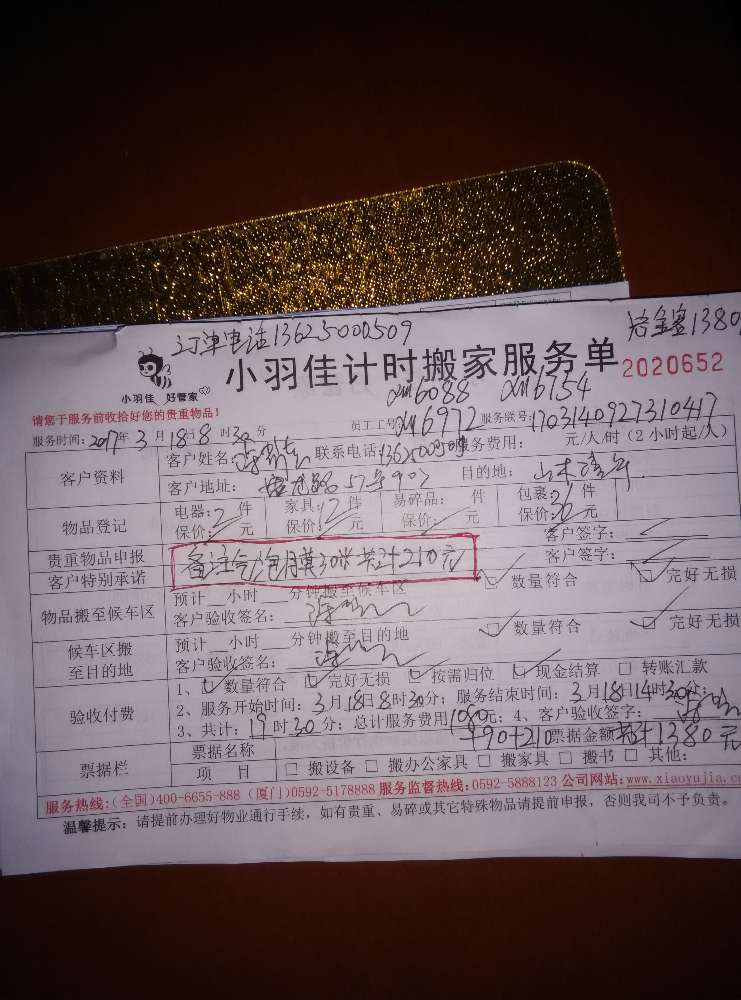 订单电话13625000509
小羽佳 好管家
小羽佳计时搬家服务单 2020652
xm6088 xm6754
请您于服务前收拾好您的贵重物品!
服务时间:2017年3月18日8时30分 员工工号xm6972 服务联号:1703140927310417
客户资料
客户姓名: 联系电话:13625000509 服务费用: 元/人/时(2小时起/人)
客户地址: 57号907 目的地:
物品登记
电器:2件 家具:2件 易碎品: 件 包裹:26件
保价: 元 保价: 元 保价: 元 保价: 元
贵重物品申报 客户签字:
客户特别承诺 备注气泡膜30米共计210元 客户签字:
物品搬至候车区
预计 小时 分钟搬至候车区 数量符合 完好无损
客户验收签名:
候车区搬至目的地
预计 小时 分钟搬至目的地 数量符合 完好无损
客户验收签名:
验收付费
1、数量符合 完好无损 按需归位 现金结算 转账汇款
2、服务开始时间:3月18日8时30分;服务结束时间:3月18日14时30分;
3、共计:19时30分;总计服务费用1080元;4、客户验收签字:
+90+210 票据金额共计1380元
票据栏
票据名称
项 目 搬设备 搬办公家具 搬家具 搬书 其他:
服务热线:(全国)400-6655-888 (厦门)0592-5178888 服务监督热线:0592-5888123 公司网站:www.xiaoyujia.com
温馨提示:请提前办理好物业通行手续,如有贵重、易碎或其它特殊物品请提前申报,否则我司不予负责。